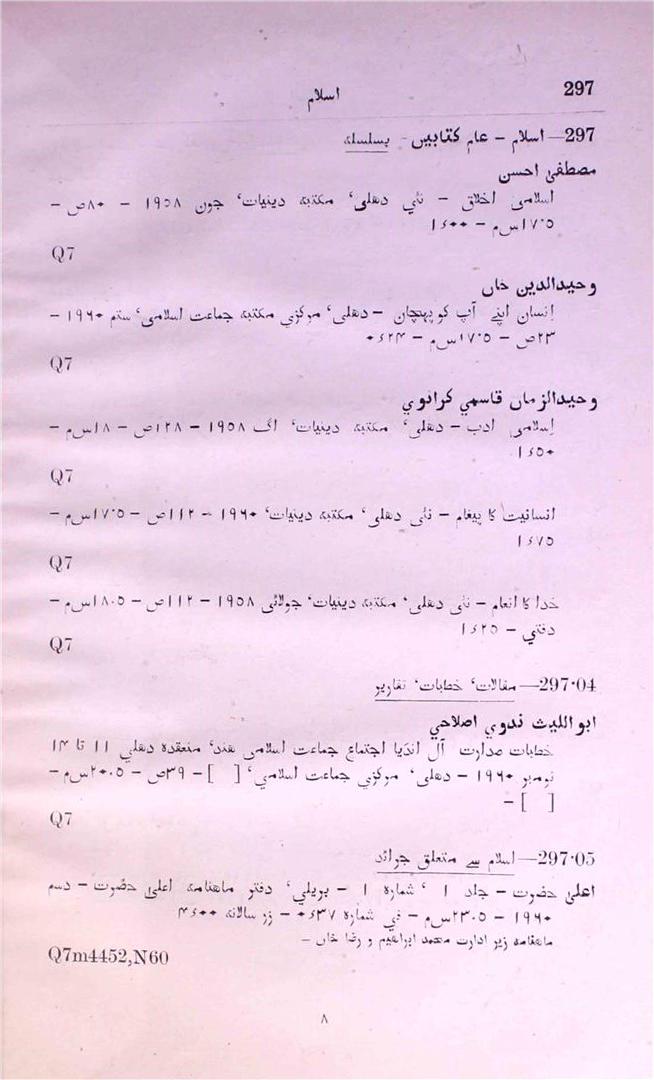 297
اسلام
297—اسلام – عام کتابیں – بسلسلہ
مصطفیٰ احسن
اسلامی اخلاق – نئي دهلی‘ مکتبہ دینیات‘ جون ۱۹۵۸ – ۸۰ص –
۱۷٠۵س م – ۱۶۰۰
Q7
وحیدالدین خاں
اِنسان اپنے آپ کو پہچان – دهلی‘ مرکزي مکتبہ جماعت اسلامی‘ ستم ۱۹۶۰ –
۲۳ص – ۱۷٠۵س م – ۰۶۲۴
Q7
وحیدالزماں قاسمي کرانوي
اِسلامی ادب – دهلی‘ مکتبہ دینیات‘ اگ ۱۹۵۸ – ۱۲۸ص – ۱۸س م –
۱۶۵۰
Q7
انسانیت کا پیغام – نئی دهلی‘ مکتبہ دینیات‘ ۱۹۶۰ – ۱۱۲ص – ۱۷٠۵س م –
۱۶۷۵
Q7
خدا کا اِنعام – نئی دهلی‘ مکتبہ دینیات‘ جولائی ۱۹۵۸ – ۱۱۲ص – ۱۸٠۵س م –
دفتي – ۱۶۲۵
Q7
297·04—مقالات‘ خطبات‘ تقاریر
ابواللیث ندوي اصلاحي
خطبات صدارت آل انڈیا اجتماع جماعت اسلامی هند‘ منعقدہ دهلي ۱۱ تا ۱۴
نومبر ۱۹۶۰ – دهلی‘ مرکزي جماعت اسلامي‘ [ ] – ۳۹ص – ۲۰٠۵س م –
[ ] –
Q7
297·05—اسلام سے متعلق جرائد
اعلیٰ حضرت – جلد ۱ ‘ شمارہ ۱ – بریلي‘ دفتر ماهنامہ اعلیٰ حضرت – دسم
۱۹۶۰ – ۲۳٠۵س م – في شمارہ ۰۶۳۷ – زر سالانہ ۴۶۰۰
ماهنامہ زیر ادارت محمد ابراهیم و رضا خاں –
Q7m4452,N60
۸